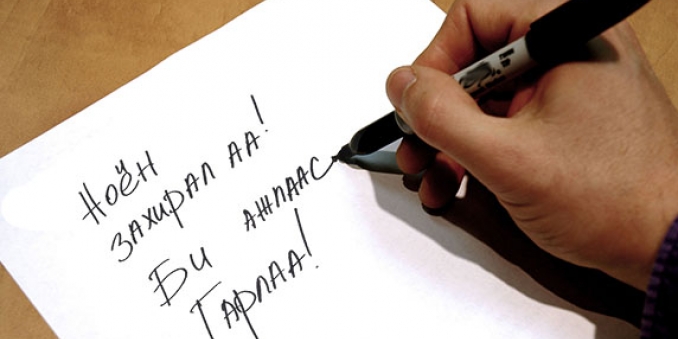 Ноён
захирал аа!
Би ажлаас
Гарлаа!